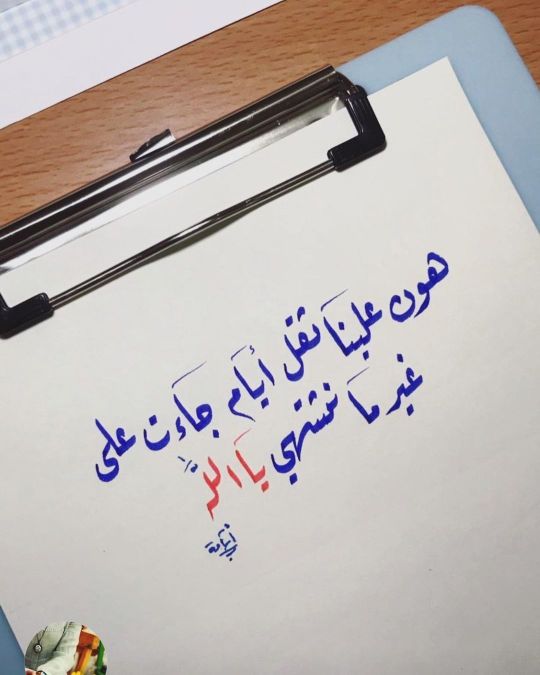 هون علينا ثقل أيام جاءت على
غير ما نشتهي يا الله